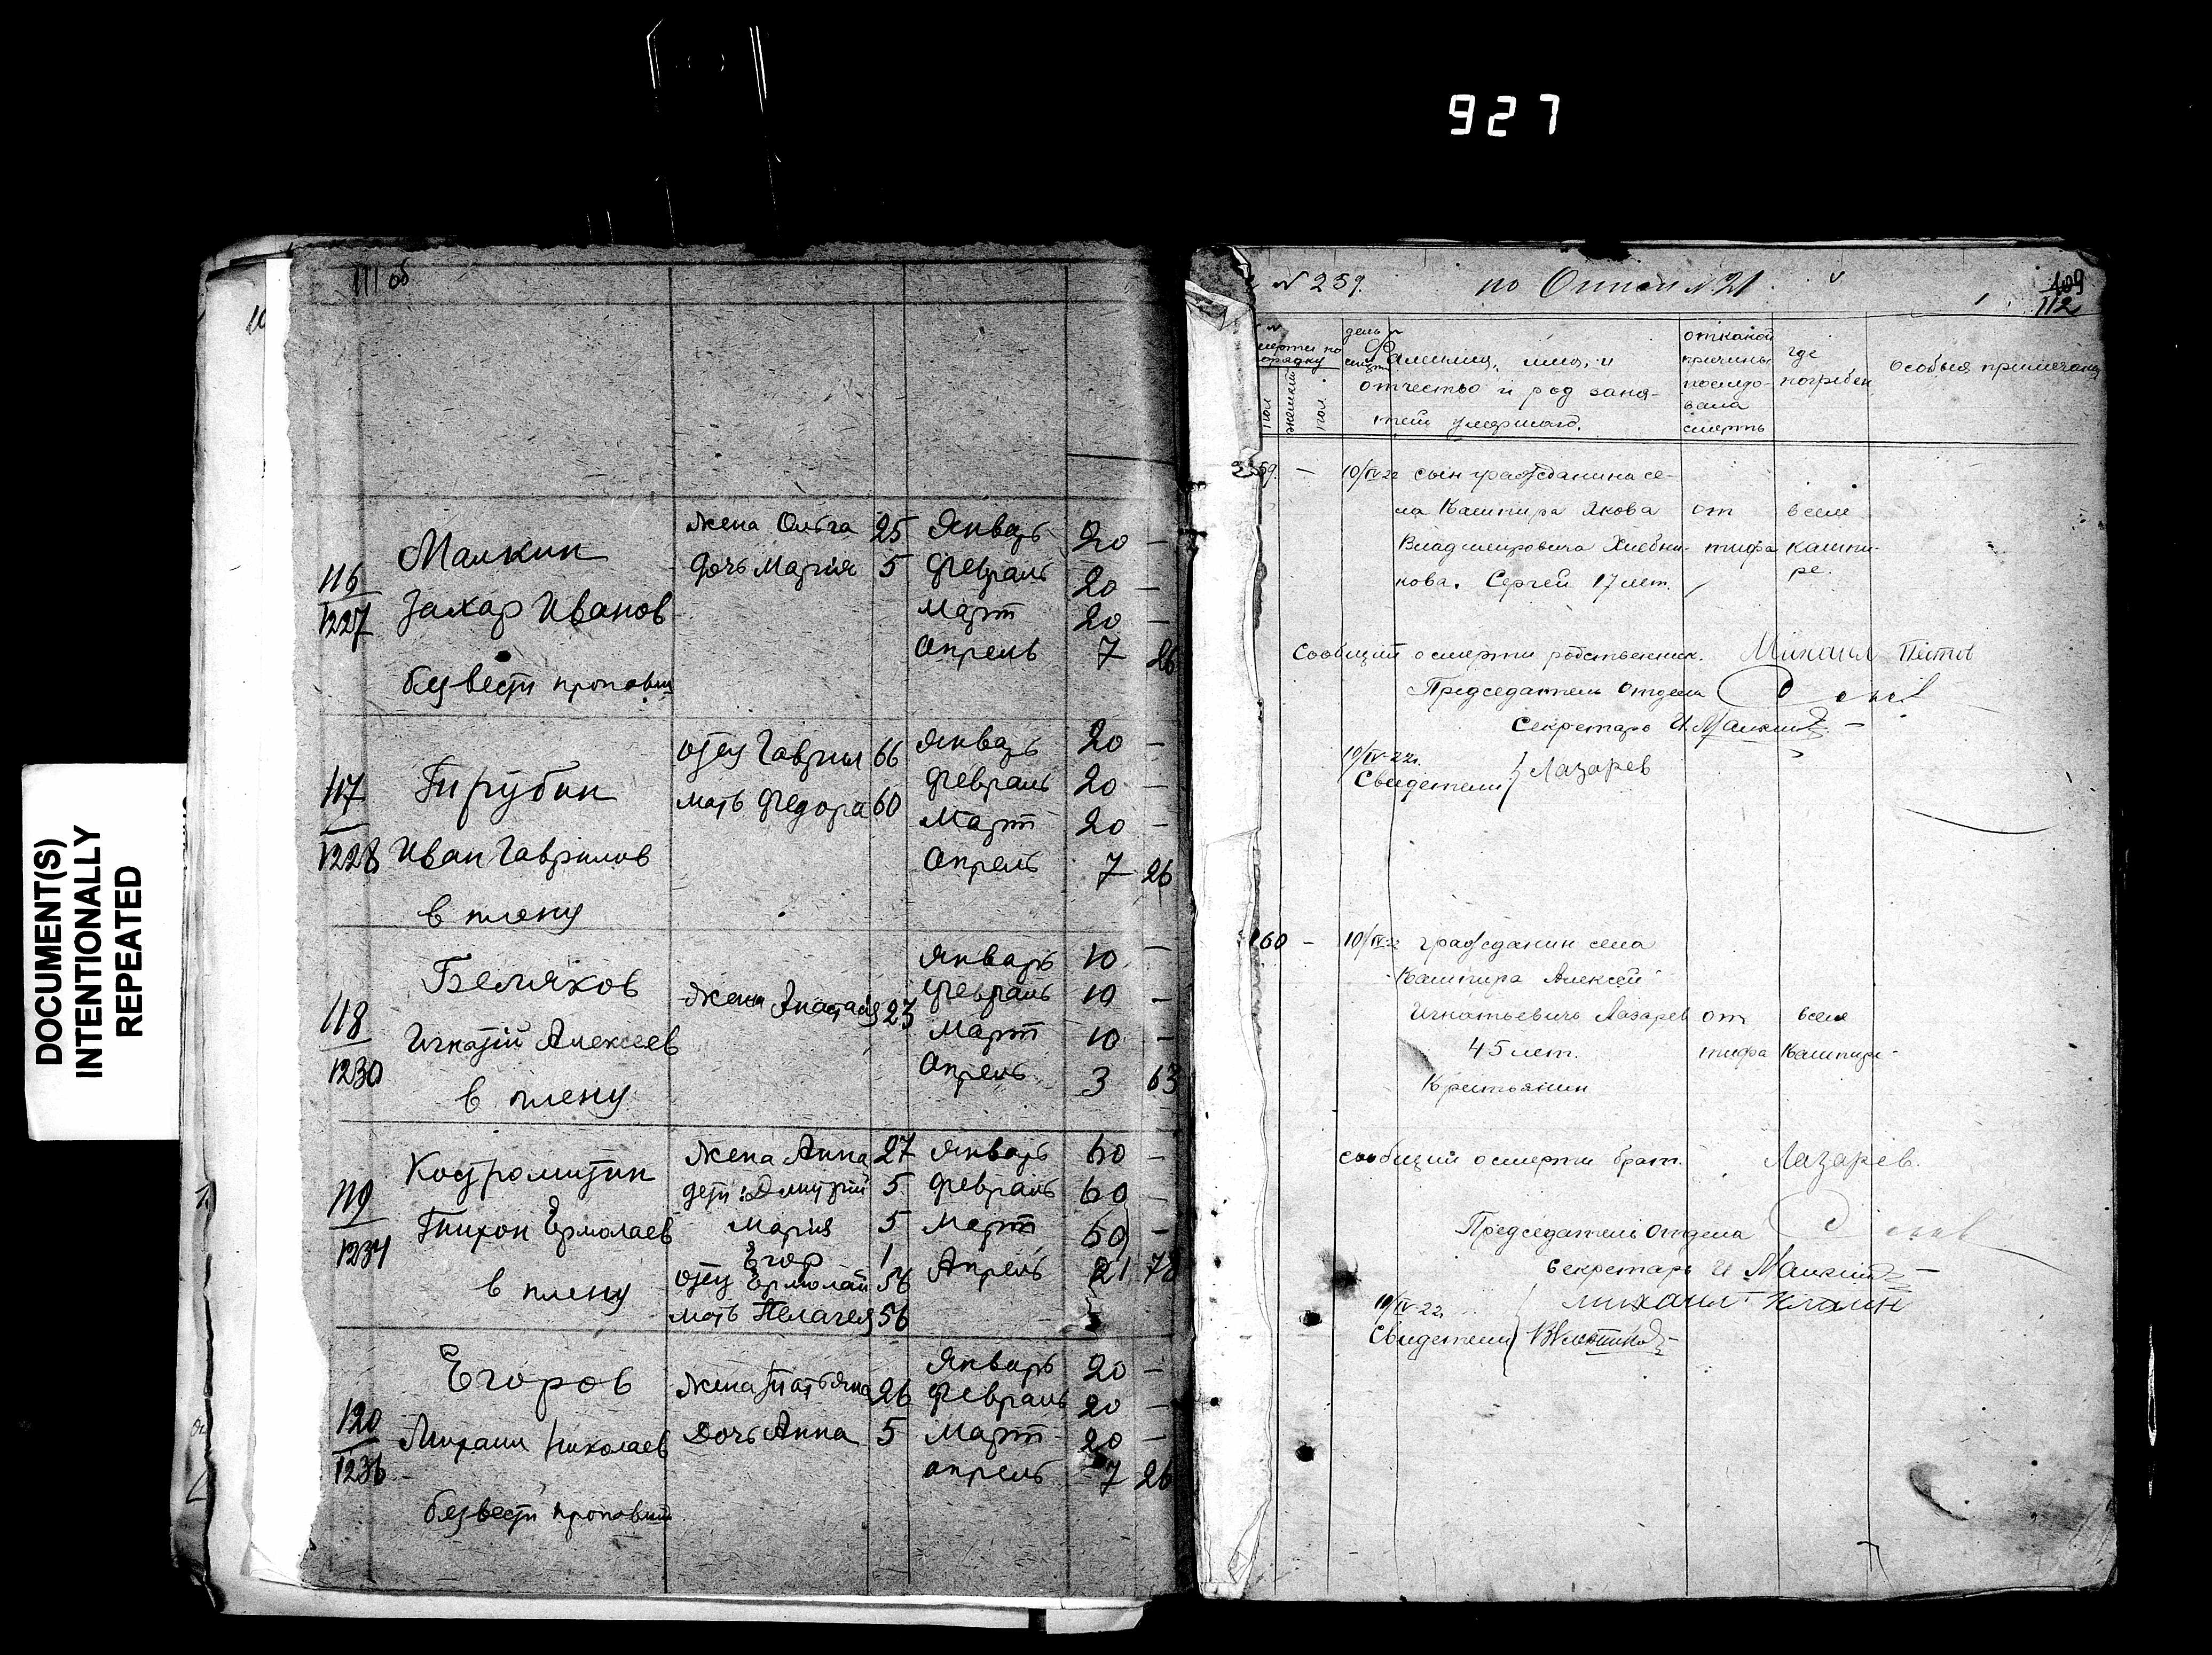 927
DOCUMENT(S)
INTENTIONALLY
REPEATED
111 об
116
1227
Малкин
Захар Иванов
безвести пропавш
жена Ольга 25
дочь Мария 5
Январь 20 -
Февраль 20 -
Март 20 -
Апрель 7 26
117
1228
Трубин
Иван Гаврилов
в плену
отец Гаврил 66
мать Федора 60
Январь 20 -
Февраль 20 -
Март 20 -
Апрель 7 26
118
1230
Беляков
Игнатий Алексеев
в плену
жена Анастасия 23
Январь 10 -
Февраль 10 -
Март 10 -
Апрель 3 63
119
1234
Костромитин
Тихон Ермолаев
в плену
жена Анна 27
дети: Дмитрий 5
Мария 5
Егор 1
отец Ермолай 56
мать Пелагея 56
Январь 60 -
Февраль 60 -
Март 60 -
Апрель 21 78
120
1236
Егоров
Михаил Николаев
безвести пропавший
жена Татьяна 26
Дочь Анна 5
Январь 20 -
Февраль 20 -
Март 20 -
апрель 7 26
N 259. по Описи N 21
109
112
смерти по
порядку
пол
женский
пол.
день и
Фамилия, имя, и
отчество и род заня-
тей умершаго.
от какой
причины
последо-
вала
смерть
где
погребен
особыя примечания
259. - 10/IV-22 сын гражданина се-
ла Кашпира Якова от в селе
Владимировича Хлебни- тифа Кашпи-
кова. Сергей 17 лет. ре.
Сообщий о смерти родственник. Михаил
Председатель Отдела
Секретарь И. Малкин
10/IV-22г.
Свидетели Лазарев
160 - 10/IV-22 гражданин села
Кашпира Алексей
Игнатьевичь Лазарев от в селе
45 лет. тифа Кашпире-
Крестьянин
сообщий о смерти брат. Лазарев.
Председатель отдела
Секретарь И Малкин
10/IV-22. Михаил
Свидетели